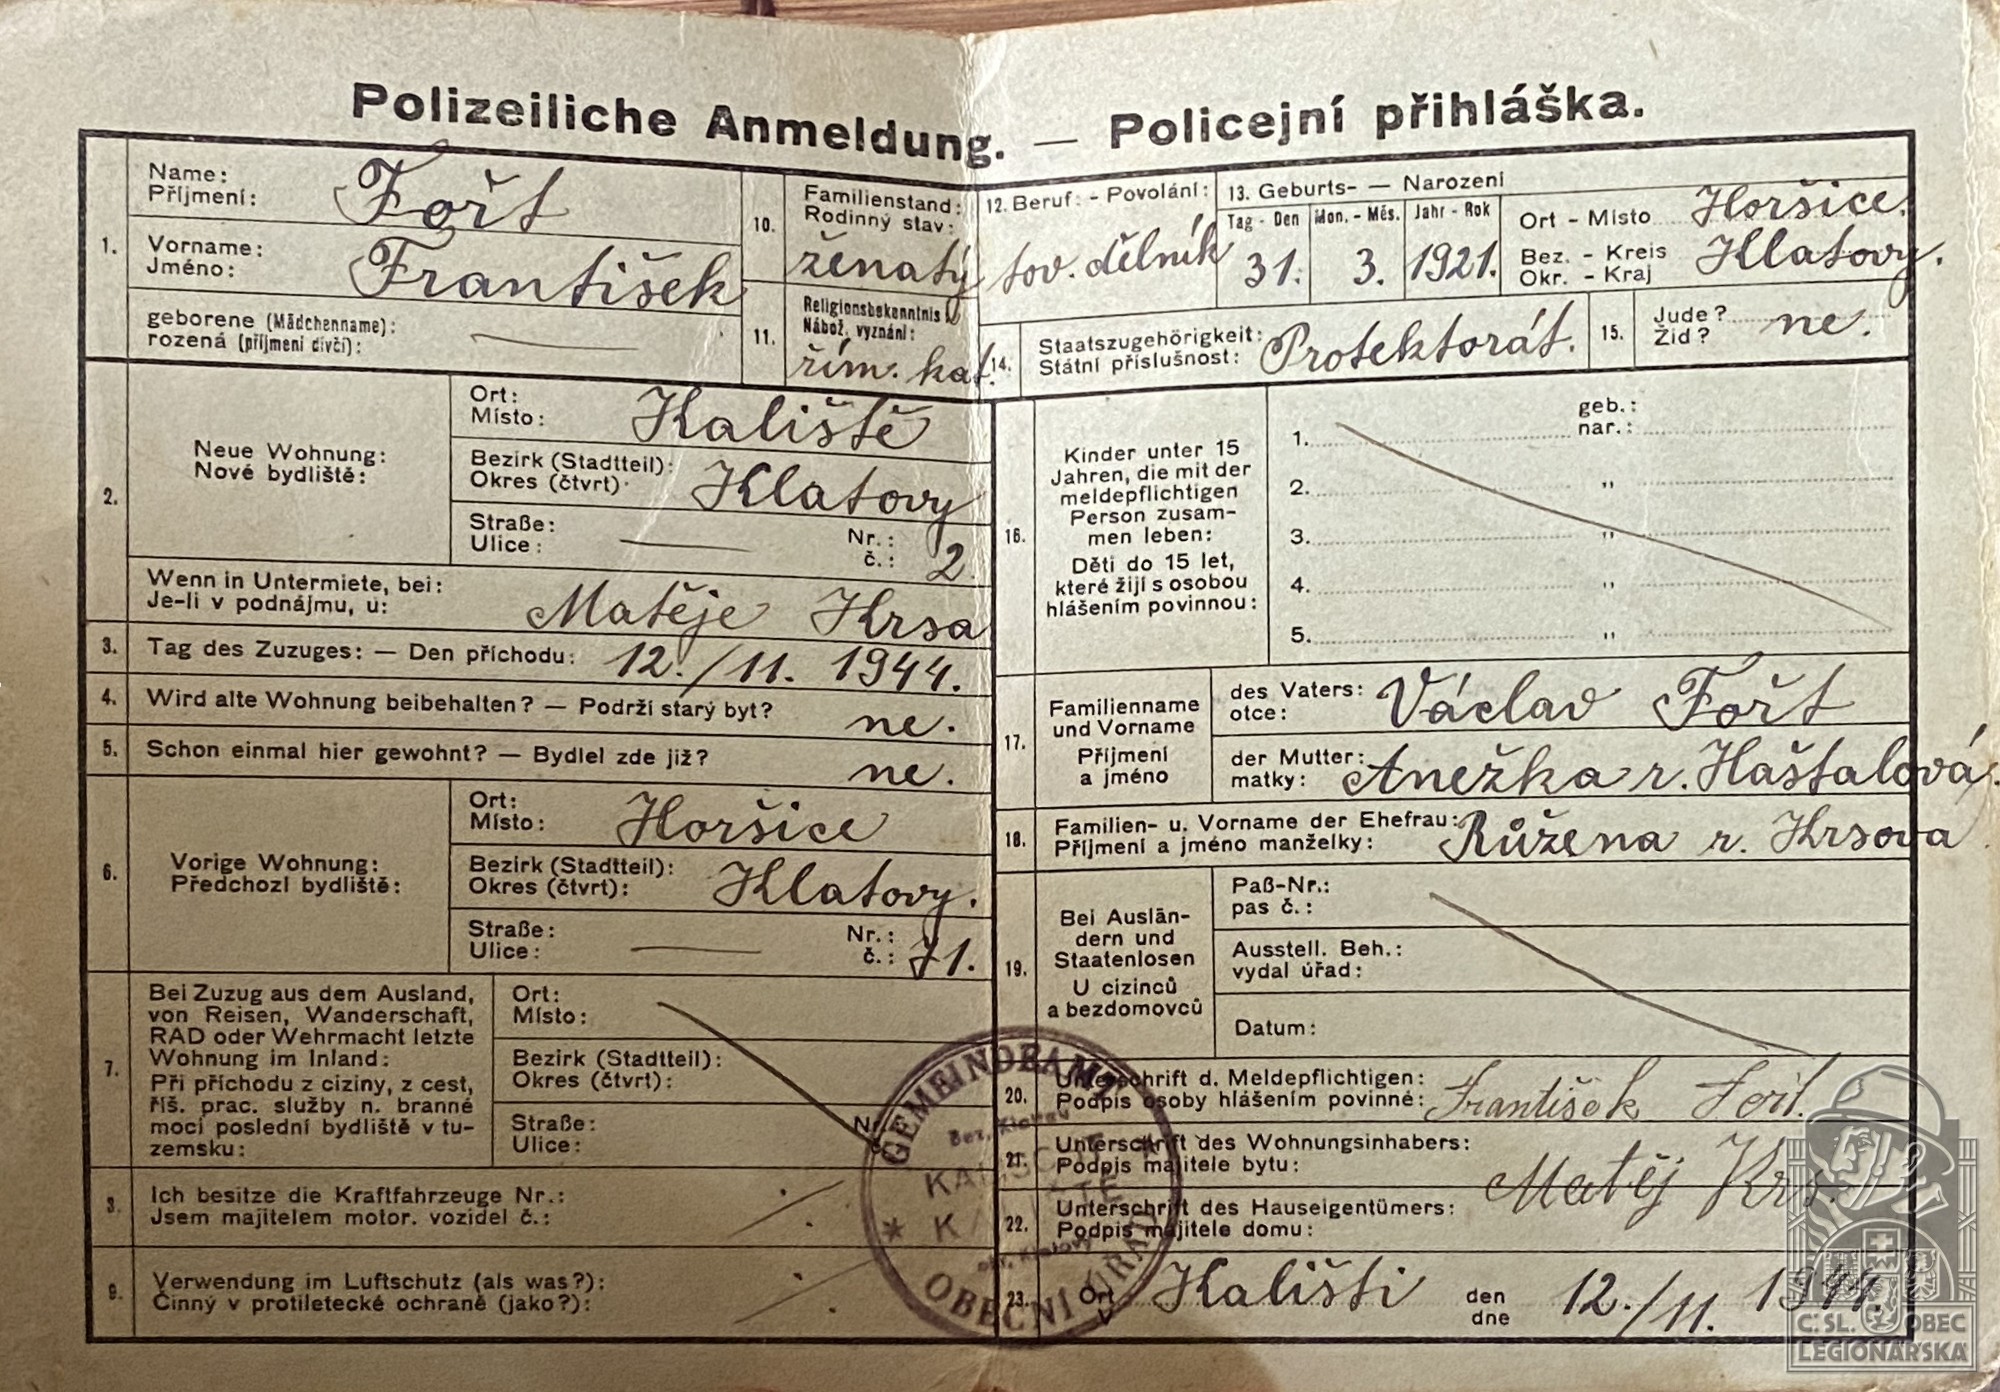 Polizeiliche Anmeldung. — Policejní přihláška.
1.
Name:
Příjmení: Fořt
Vorname:
Jméno: František
geborene (Mädchenname):
rozená (příjmení dívčí): —
10.
Familienstand:
Rodinný stav:
ženatý
11.
Religionsbekenntnis
Nábož. vyznání:
řím. kat.
2.
Neue Wohnung:
Nové bydliště:
Ort:
Místo: Kaliště
Bezirk (Stadtteil):
Okres (čtvrt): Klatovy
Straße:
Ulice: —
Nr.:
č.: 2
Wenn in Untermiete, bei:
Je-li v podnájmu, u: Matěje Krsa
3. Tag des Zuzuges: — Den příchodu: 12./11. 1944.
4. Wird alte Wohnung beibehalten? — Podrží starý byt? ne.
5. Schon einmal hier gewohnt? — Bydlel zde již? ne.
6.
Vorige Wohnung:
Předchozí bydliště:
Ort:
Místo: Horšice
Bezirk (Stadtteil):
Okres (čtvrt): Klatovy.
Straße:
Ulice: —
Nr.:
č.: 71.
7.
Bei Zuzug aus dem Ausland,
von Reisen, Wanderschaft,
RAD oder Wehrmacht letzte
Wohnung im Inland:
Při příchodu z ciziny, z cest,
říš. prac. služby n. branné
moci poslední bydliště v tu-
zemsku:
Ort:
Místo:
Bezirk (Stadtteil):
Okres (čtvrt):
Straße:
Ulice:
8.
Ich besitze die Kraftfahrzeuge Nr.:
Jsem majitelem motor. vozidel č.:
9.
Verwendung im Luftschutz (als was?):
Činný v protiletecké ochraně (jako?):
12. Beruf: - Povolání:
tov. dělník
13. Geburts- — Narození
Tag - Den
31.
Mon. - Měs.
3.
Jahr - Rok
1921.
Ort - Místo Horšice.
Bez. - Kreis
Okr. - Kraj Klatovy.
14.
Staatszugehörigkeit:
Státní příslušnost: Protektorát.
15.
Jude?
Žid? ne.
16.
Kinder unter 15
Jahren, die mit der
meldepflichtigen
Person zusam-
men leben:
Děti do 15 let,
které žijí s osobou
hlášením povinnou:
geb.:
1. nar.:
2. "
3. "
4. "
5. "
17.
Familienname
und Vorname
Příjmení
a jméno
des Vaters:
otce: Václav Fořt
der Mutter:
matky: Anežka r. Haštalová.
18.
Familien- u. Vorname der Ehefrau:
Příjmení a jméno manželky: Růžena r. Krsova
19.
Bei Auslän-
dern und
Staatenlosen
U cizinců
a bezdomovců
Paß-Nr.:
pas č.:
Ausstell. Beh.:
vydal úřad:
Datum:
20.
Unterschrift d. Meldepflichtigen:
Podpis osoby hlášením povinné: František Fořt.
21.
Unterschrift des Wohnungsinhabers:
Podpis majitele bytu: Matěj Krs.
22.
Unterschrift des Hauseigentümers:
Podpis majitele domu:
23.
Ort
V Kališti
den
dne 12./11. 1944.
GEMEINDEAMT
Bez. Klattau
OBECNÍ ÚŘAD
okr. Klatovy
Č. SL. OBEC
LEGIONÁŘSKÁ